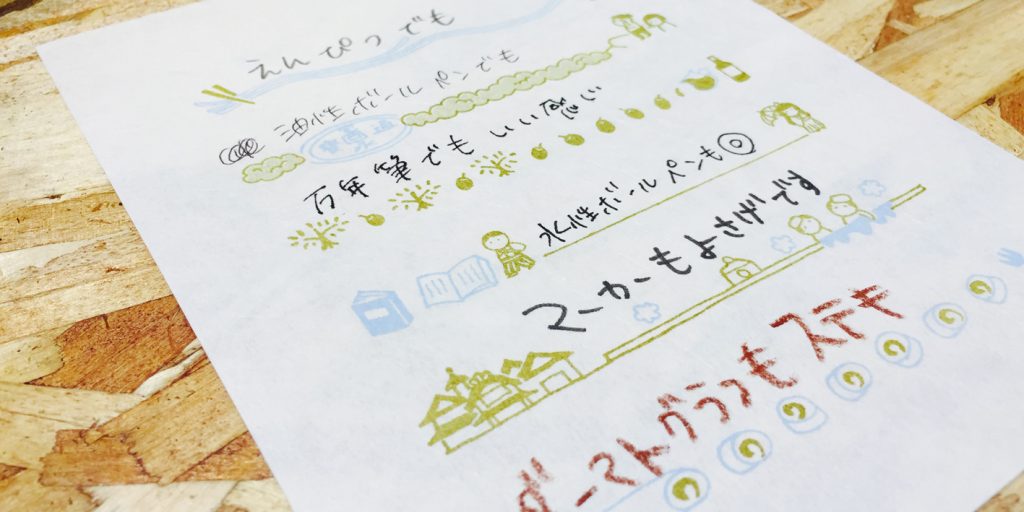 えんぴつでも
油性ボールペンでも
万年筆でもいい感じ
水性ボールペンも◎
マーカーもよさげです
ダーマトグラフもステキ